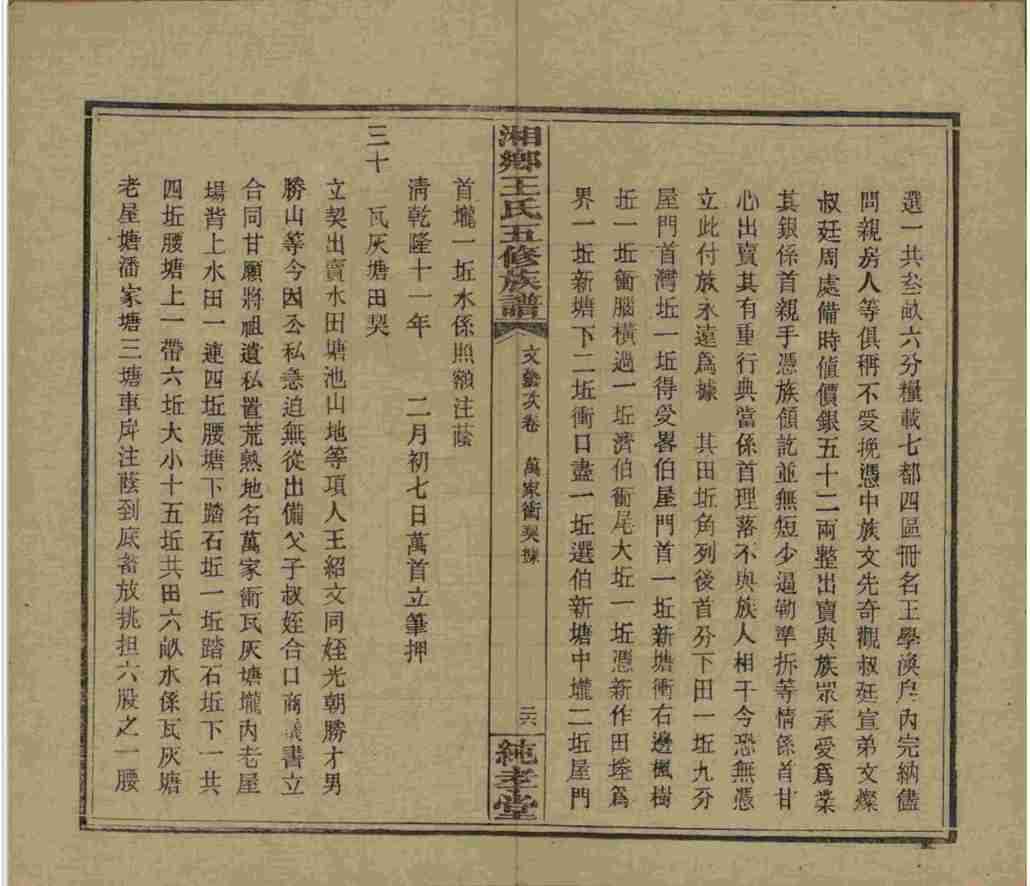 選一共叁畝六分糧載七都四區冊名王學渙戶內完納儘
問親房人等俱稱不受挽憑中族文先奇觀叔廷宣弟文燦
叔廷周處備時値價銀五十二兩整出賣與族眾承受爲業
其銀係首親手憑族領訖並無短少逼勒準折等情係首甘
心出賣其有重行典當係首理落不與族人相干今恐無憑
立此付放永遠爲據 其田坵角列後首分下田一坵九分
屋門首灣坵一坵得受畧伯屋門首一坵新塘衝右邊楓樹
坵一坵衝腦橫過一坵濟伯衝尾大坵一坵憑新作田墾爲
界一坵新塘下二坵衝口盡一坵選伯新塘中壠二坵屋門
湘鄉王氏五修族譜 文藝次卷 萬家衝契據 二六 純孝堂
首壠一坵水係照額注蔭
淸乾隆十一年 二月初七日萬首立筆押
三十 瓦灰塘田契
立契出賣水田塘池山地等項人王紹文同姪光朝勝才男
勝山等今因公私急迫無從出備父子叔姪合口商議書立
合同甘願將祖遺私置荒熟地名萬家衝瓦灰塘壠內老屋
場背上水田一連四坵腰塘下踏石坵一坵踏石坵下一共
四坵腰塘上一帶六坵大小十五坵共田六畝水係瓦灰塘
老屋塘潘家塘三塘車戽注蔭到底畜放挑担六股之一腰